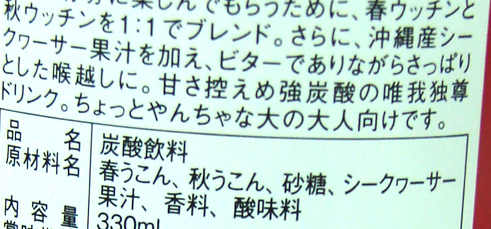 に楽しんでもらうために、春ウッチンと
秋ウッチンを1:1でブレンド。さらに、沖縄産シー
クヮーサー果汁を加え、ビターでありながらさっぱり
とした喉越しに。甘さ控えめ強炭酸の唯我独尊
ドリンク。ちょっとやんちゃな大の大人向けです。
品名 炭酸飲料
原材料名 春うこん、秋うこん、砂糖、シークヮーサー
果汁、香料、酸味料
内容量 330ml